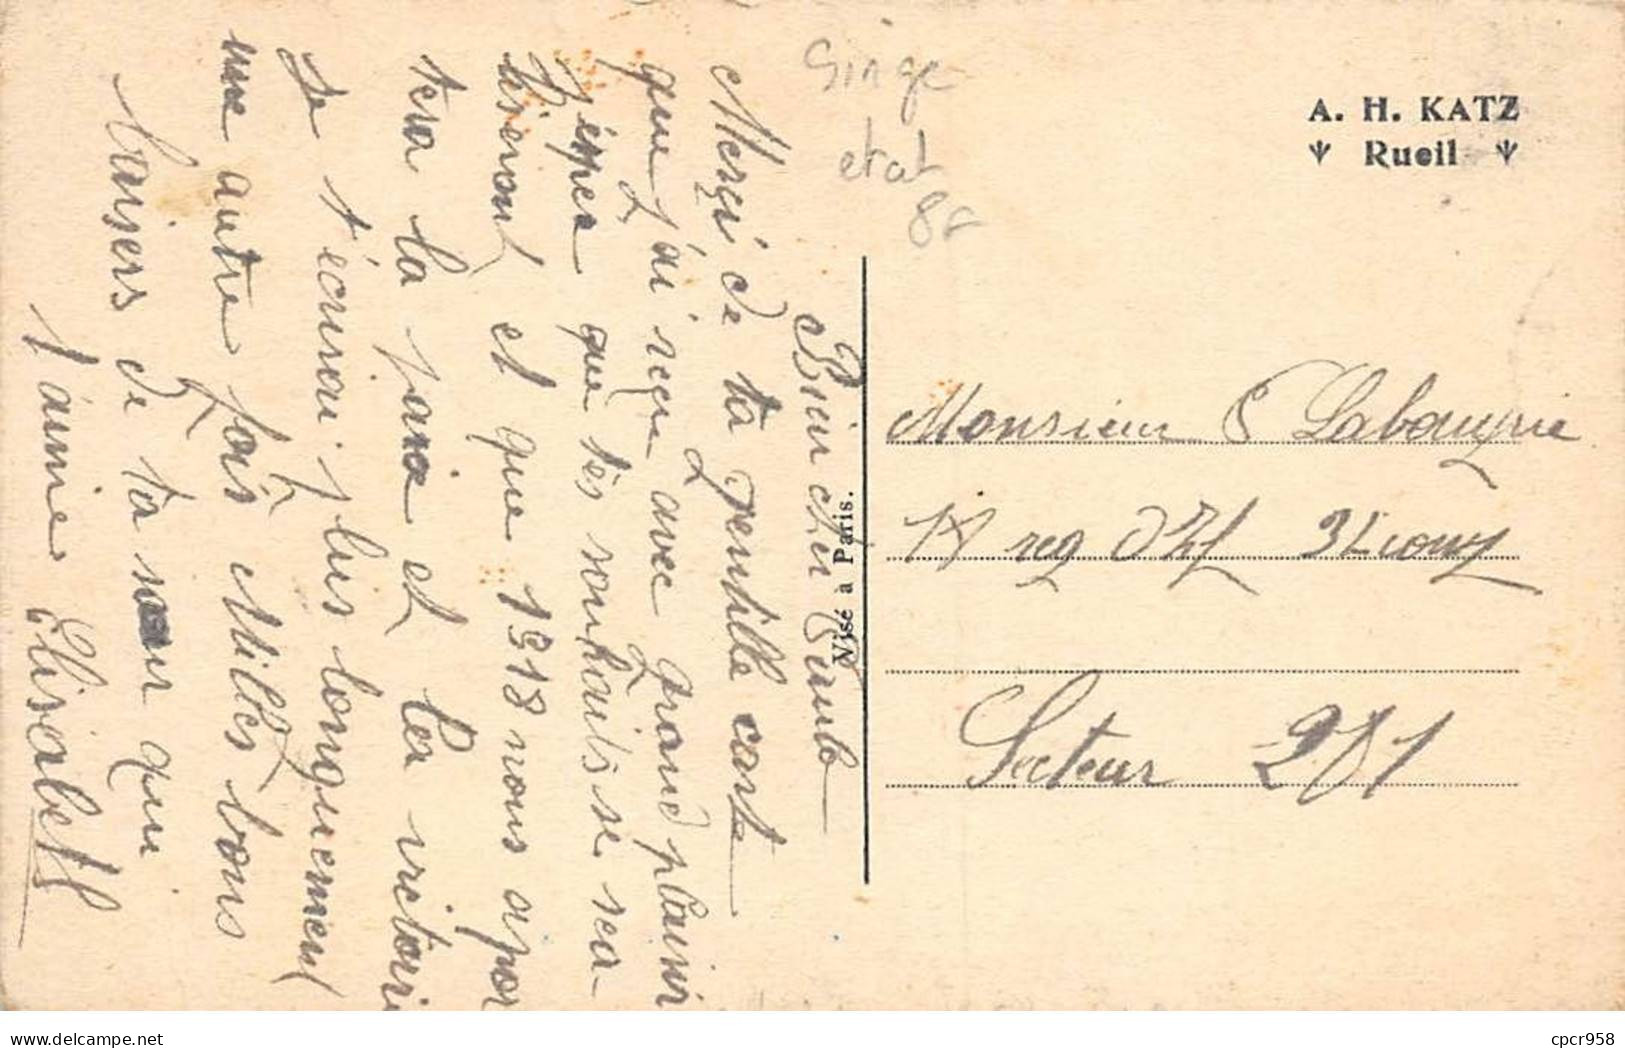 Singe
etat
8€
A. H. KATZ
Rueil
Visé à Paris.
Bien cher
Merçi de ta gentille carte
que j'ai reçu avec grand plaisir
J'éspér que tés souhaits se réa-
liseront et que 1918 nous appor
tera la paix et la victoire
Je t'écrirai plus longuement
une autre fois Milles bons
baisers de ta sœur qui
t'aime
Elisabeth
Monsieur
reg
Secteur 201